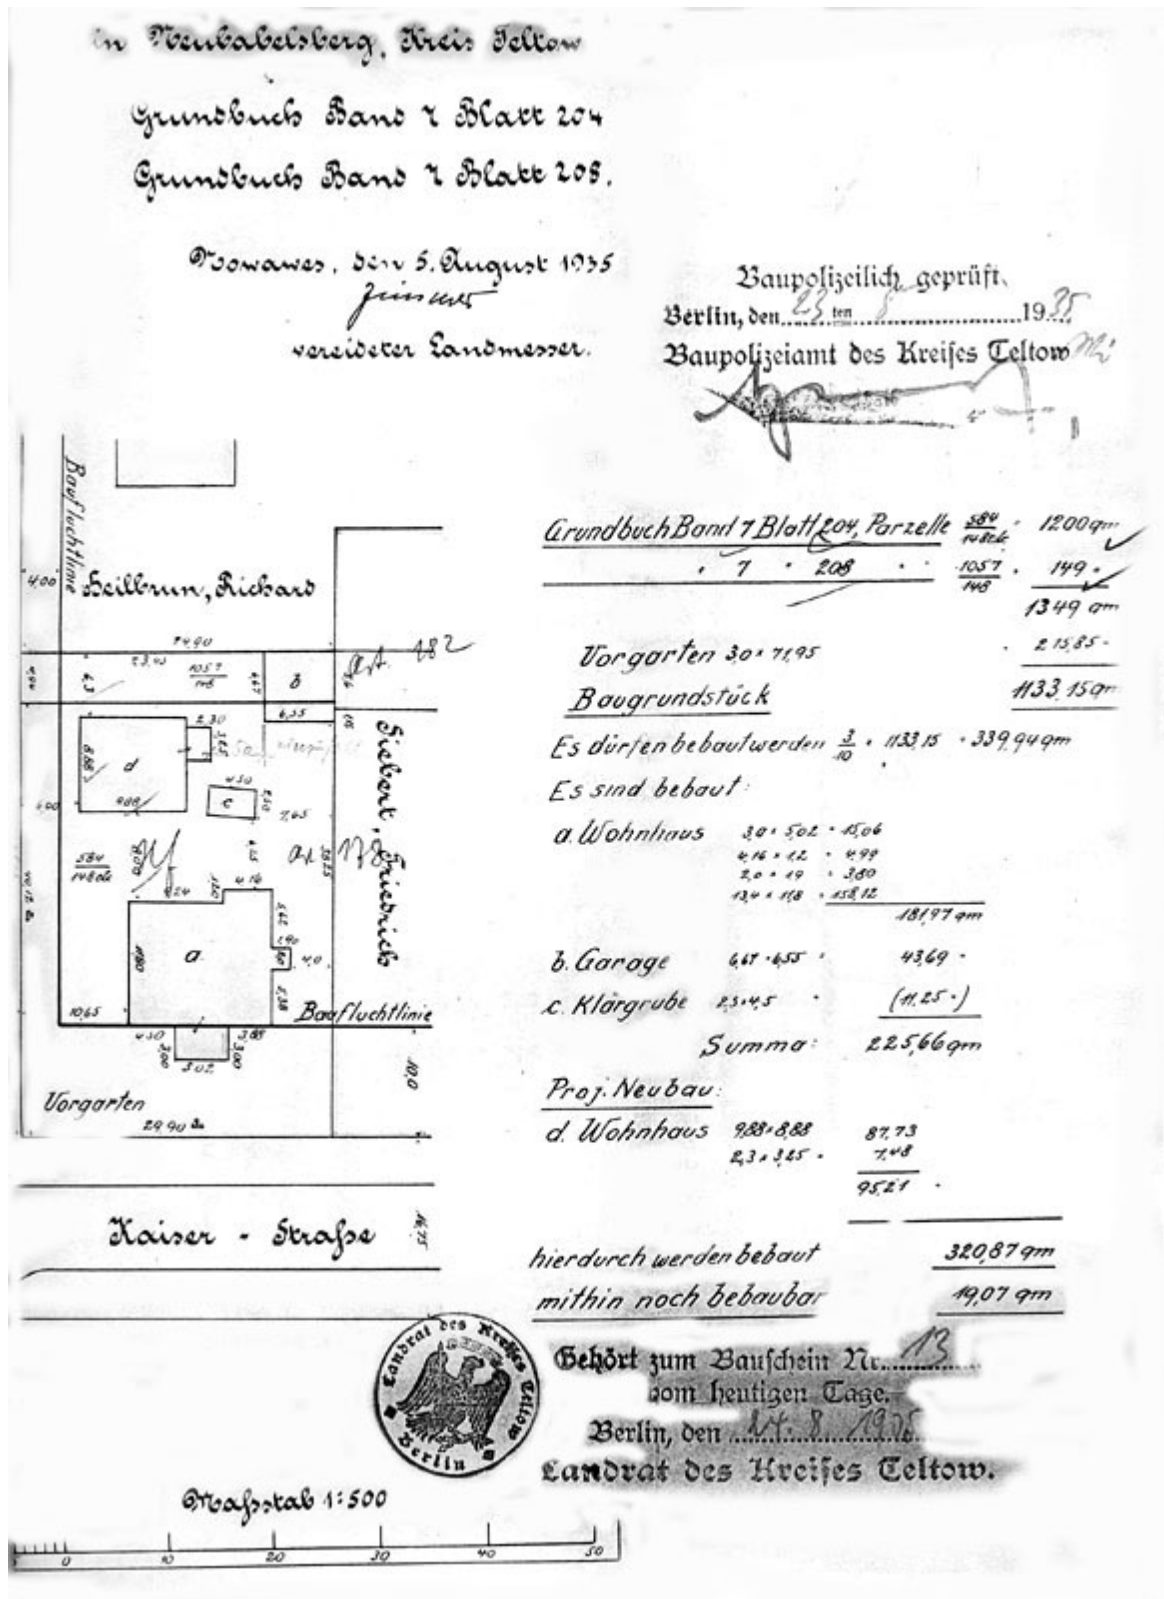 in Neubabelsberg, Kreis Teltow
Grundbuch Band 7 Blatt 204
Grundbuch Band 7 Blatt 208.
Nowawes, den 5. August 1935
vereideter Landmesser.
Baupolizeilich geprüft.
Berlin, den 23 ten 8 1935
Baupolizeiamt des Kreises Teltow
Baufluchtlinie
4,00
Heilbrun, Richard
74.90
23,40
1057/148
b
6,55
art. 182
2,30
3,25
8,88
d
9,88
4,50
c
2,50
7,65
Siebert, Friedrich
584/148
art 178
4,24
1,20
4,16
a
11,80
1,90
4,0
5,38
10,65
Baufluchtlinie
4,50
3,88
3,00
5,02
3,00
10,0
Vorgarten
29.90
Kaiser - Straße
16,75
Grundbuch Band 7 Blatt 204, Parzelle 584/148 " 1200 qm
" 7 " 208 " " 1057/148 " 149 "
1349 qm
Vorgarten 3,0 × 71,95 " 215,85 "
Baugrundstück 1133,15 qm
Es dürfen bebaut werden 3/10 × 1133,15 = 339,94 qm
Es sind bebaut:
a. Wohnhaus 3,0 × 5,02 = 15,06
4,16 × 1,2 = 4,99
2,0 × 1,9 = 3,80
13,4 × 11,8 = 158,12
181,97 qm
b. Garage 6,67 × 6,55 = 43,69 "
c. Klärgrube 2,5 × 4,5 = (11,25 ")
Summa: 225,66 qm
Proj. Neubau:
d. Wohnhaus 9,88 × 8,88 87,73
2,3 × 3,25 = 7,48
95,21 "
hierdurch werden bebaut 320,87 qm
mithin noch bebaubar 19,07 qm
Landrat des Kreises Teltow
Berlin
Gehört zum Bauschein Nr. 13
vom heutigen Tage.
Berlin, den 24. 8 1935
Landrat des Kreises Teltow.
Maßstab 1:500
0 10 20 30 40 50